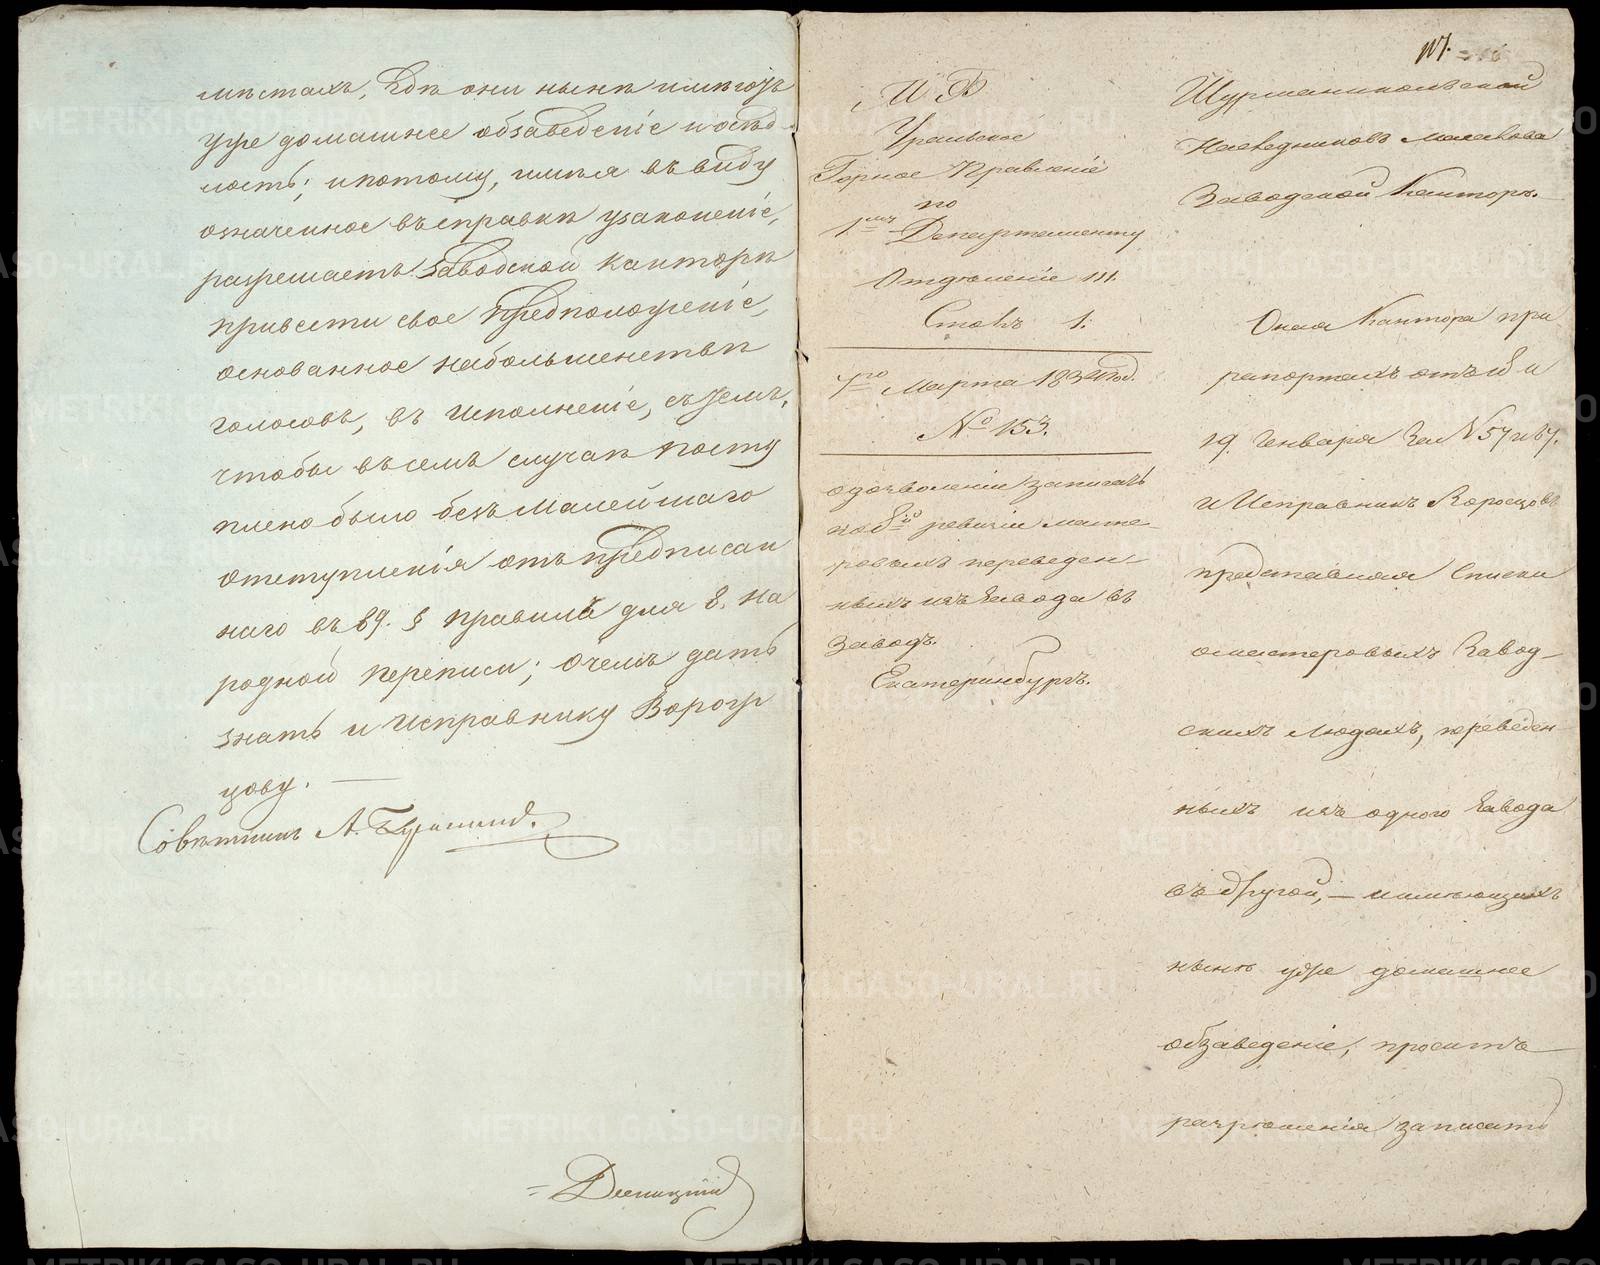 мѣстахъ, гдѣ они нынѣ имѣютъ
уже домашнее обзаведеніе и осѣд-
лость; и потому, имѣя въ виду
означенное въ справкѣ узаконеніе,
разрешаетъ Заводской Канторѣ
привести свое предположеніе,
основанное на большенствѣ
голосовъ, въ исполненіе, съ темъ,
чтобы въ семъ случаѣ посту
плено было безъ малейшаго
отступленія отъ предписан
наго въ 69. § правилъ для 8. На
родной переписи; о чемъ дать
знать и Исправнику Воро
цову. —
Совѣтникъ А.
= Десницкій
117.
М. Ф.
Уральское
Горное Правленіе
по
1му Департаменту
Отдѣленіе III.
Столъ 1.
7го Марта 1834 год.
№ 153.
о дозволеніи записать
по 8й ревизіи масте-
ровыхъ переведен-
ныхъ изъ завода въ
заводъ.
Екатеринбургъ.
Шурманикольской
Наследниковъ Масалова
Заводской Канторѣ.
Оная Кантора при
рапортахъ отъ 18 и
19. Генваря за № 57 и 67.
и Исправникъ
представляя Списки
о мастеровыхъ Завод-
скихъ людяхъ, переведен-
ныхъ изъ одного Завода
въ другой, — имѣющихъ
нынѣ уже домашнее
обзаведеніе, просятъ
разрѣшенія записать
METRIKI.GASO-URAL.RU